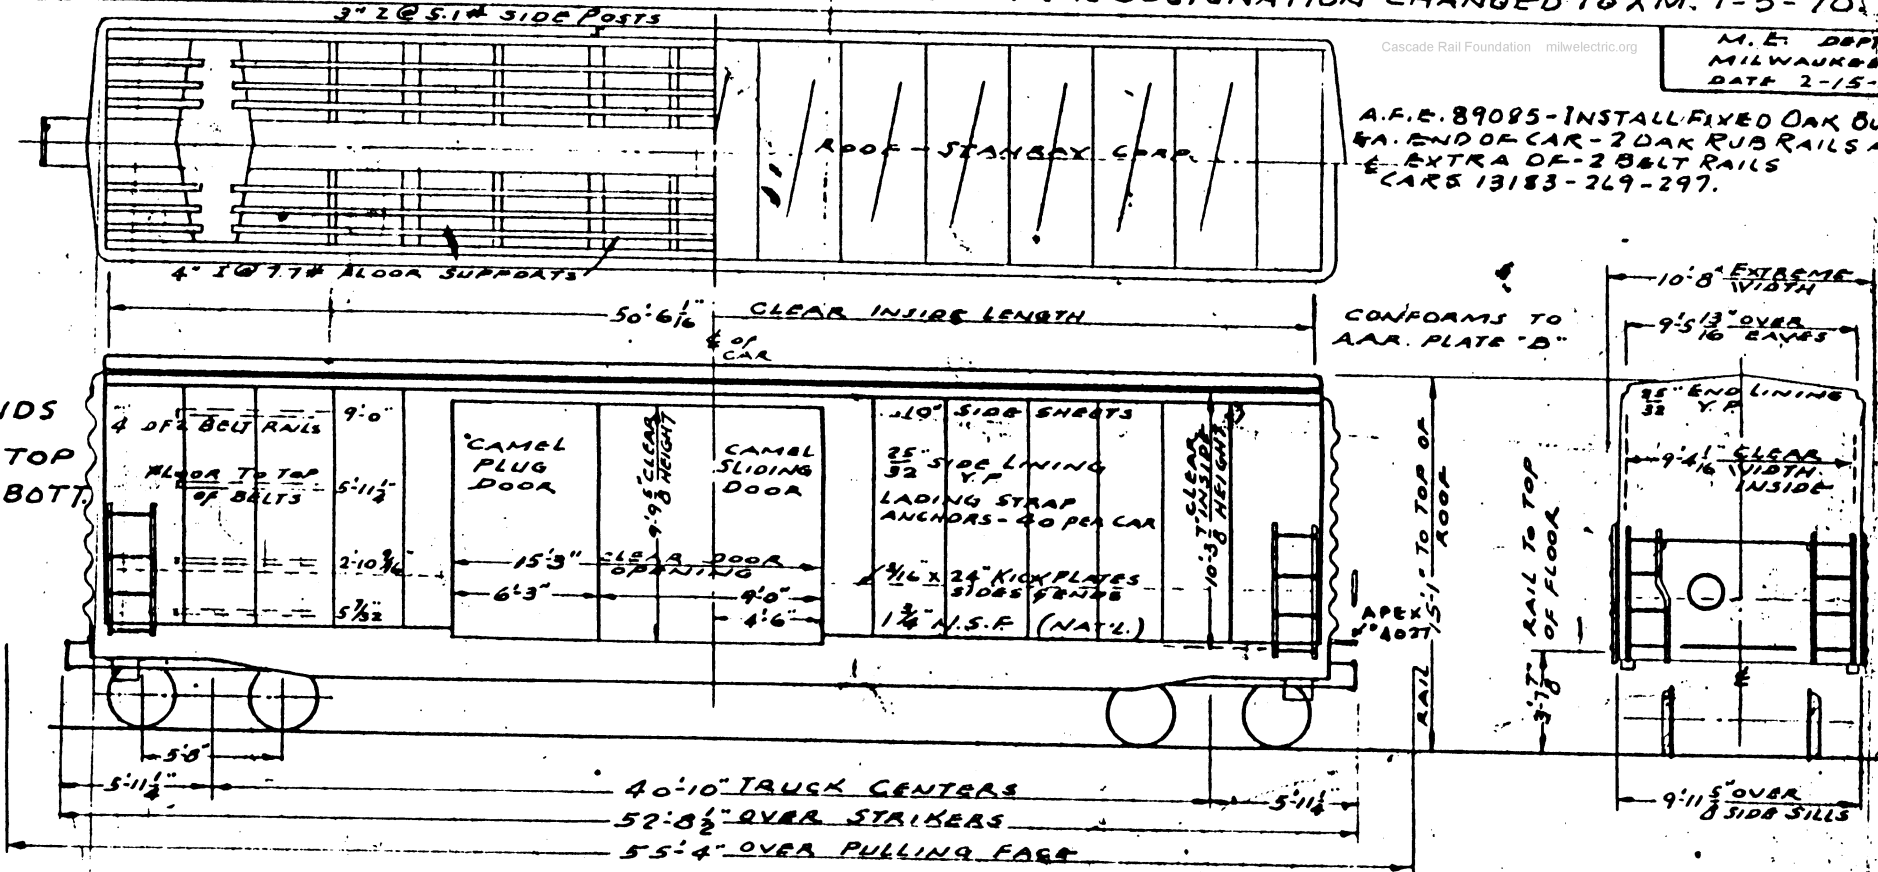 DESIGNATION CHANGED TO XM. 1-5-70.
3" Z @ 5.1# SIDE POSTS
Cascade Rail Foundation milwelectric.org
M. E. DEPT
MILWAUKEE
DATE 2-15-
A.F.E. 89085-INSTALL FIXED OAK BU
EA. END OF CAR-2 OAK RUB RAILS
EXTRA DF-2 BELT RAILS
CARS 13183-269-297.
ROOF - STANRAY CORP.
4" I @ 7.7# FLOOR SUPPORTS
50'-6 1/16" CLEAR INSIDE LENGTH
℄ OF
CAR
CONFORMS TO
AAR. PLATE "B"
10'-8" EXTREME
WIDTH
9'-5 13/16" OVER
EAVES
IDS
TOP
BOTT.
4 DF2 BELT RAILS 9'-0"
FLOOR TO TOP
OF BELTS 5'-11 1/2"
2'-10 9/16"
5 7/32"
CAMEL
PLUG
DOOR
9'-9 5/8" CLEAR
HEIGHT
CAMEL
SLIDING
DOOR
15'-3" CLEAR DOOR
OPENING
6'-3" 9'-0"
4'-6"
.10" SIDE SHEETS
25/32" SIDE LINING
Y.P.
LADING STRAP
ANCHORS-40 PER CAR
3/16" X 24" KICKPLATES
SIDES & ENDS
1 3/4" N.S.F. (NAT'L.)
10'-3 7/8" CLEAR
INSIDE
HEIGHT
APEX
RAIL 15'-1" TO TOP OF
ROOF
3'-7 7/8" RAIL TO TOP
OF FLOOR
25/32" END LINING
Y.P.
9'-4 1/16" CLEAR
WIDTH
INSIDE
5'-8"
5'-11 1/4"
40'-10" TRUCK CENTERS
5'-11 1/4"
52'-8 1/2" OVER STRIKERS
55'-4" OVER PULLING FACE
9'-11 5/8" OVER
SIDE SILLS